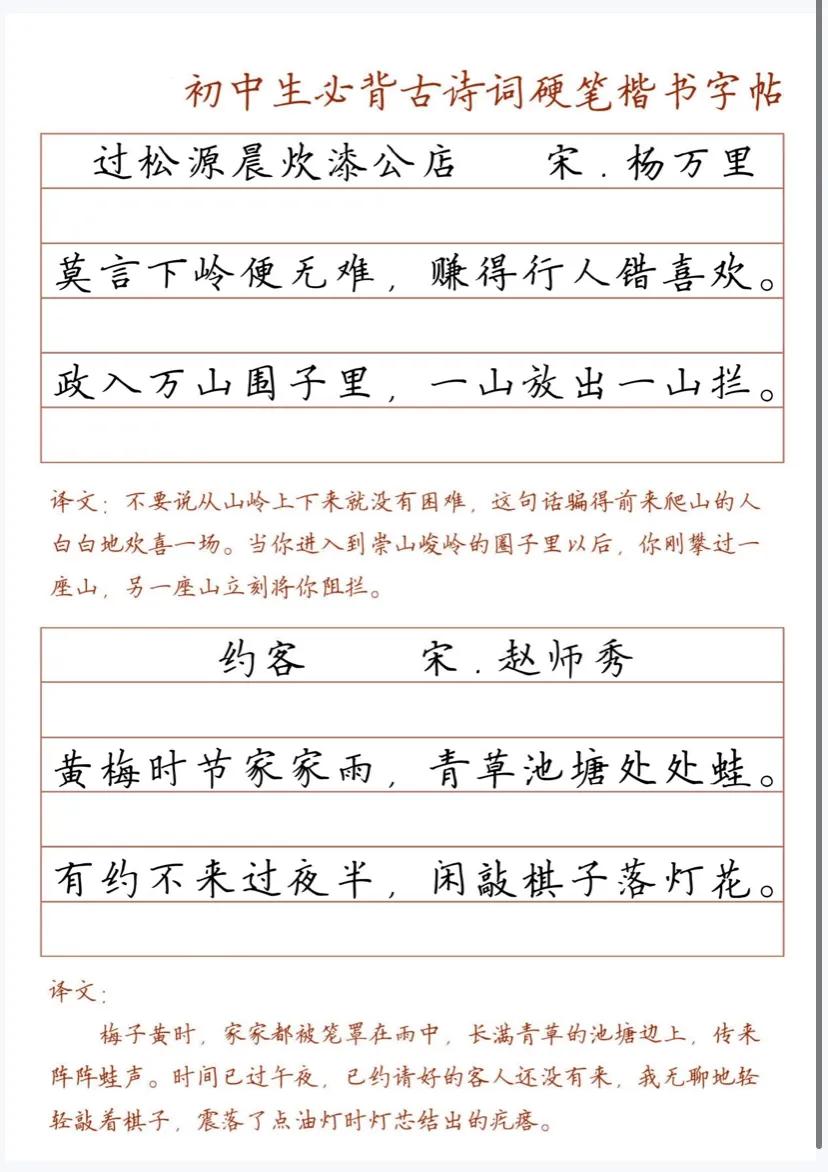 初中生必背古诗词硬笔楷书字帖
过松源晨炊漆公店 宋.杨万里
莫言下岭便无难，赚得行人错喜欢。
政入万山围子里，一山放出一山拦。
译文：不要说从山岭上下来就没有困难，这句话骗得前来爬山的人
白白地欢喜一场。当你进入到崇山峻岭的圈子里以后，你刚攀过一
座山，另一座山立刻将你阻拦。
约客 宋.赵师秀
黄梅时节家家雨，青草池塘处处蛙。
有约不来过夜半，闲敲棋子落灯花。
译文：
梅子黄时，家家都被笼罩在雨中，长满青草的池塘边上，传来
阵阵蛙声。时间已过午夜，已约请好的客人还没有来，我无聊地轻
轻敲着棋子，震落了点油灯时灯芯结出的疙瘩。